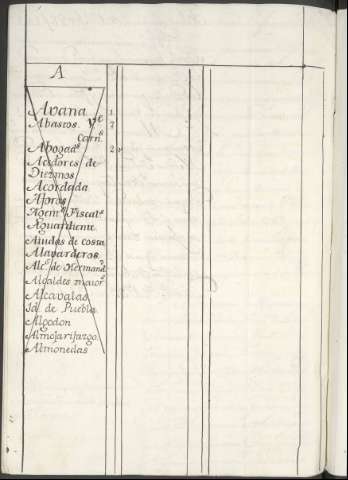 A
Avana 1
Abastos. y e 2
Carn.s
Abogad.s 2
Acedores de
Diezmos
Acordada
Aforos
Agent.s Fiscal.s
Aguardiente
Aiudas de costa
Alavarderos
Alc.s de Hermand.
Alcaldes maior.s
Alcavalas
Id. de Puebla
Algodon
Almojarifazgo
Almonedas